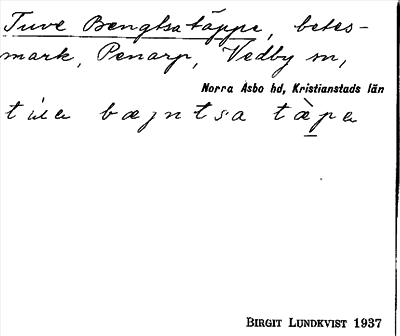 Tuve Bengtsatäppe, betes-
mark, Penarp, Vedby sn,
Norra Åsbo hd, Kristianstads län
BIRGIT LUNDKVIST 1937